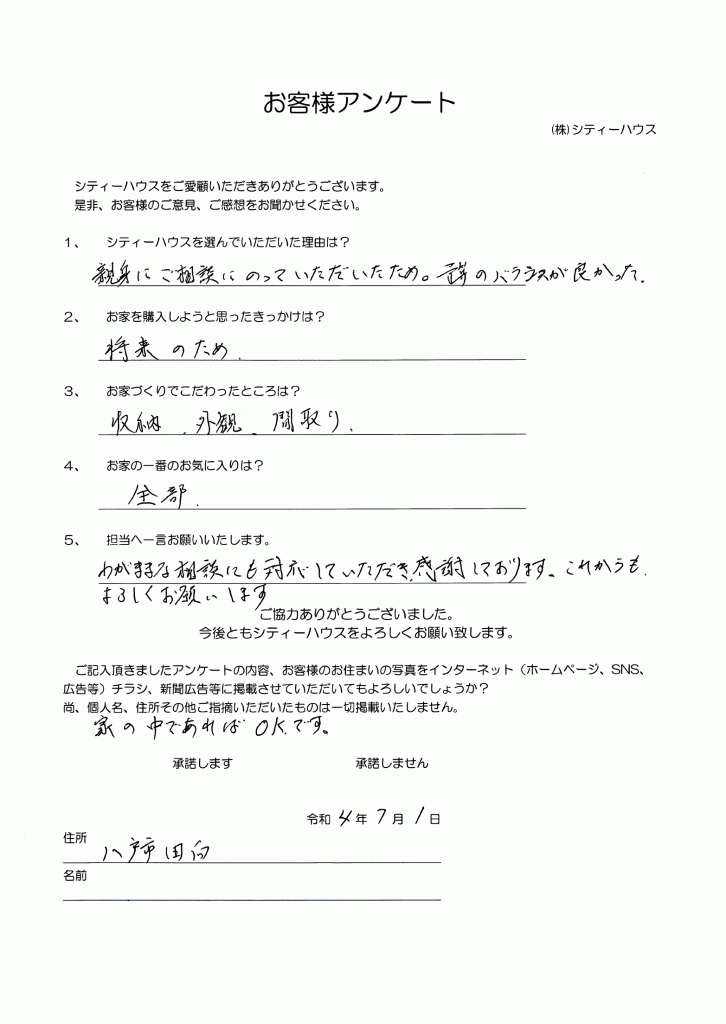 お客様アンケート
(株)シティーハウス
シティーハウスをご愛顧いただきありがとうございます。
是非、お客様のご意見、ご感想をお聞かせください。
1、 シティーハウスを選んでいただいた理由は?
親身にご相談にのっていただいたため。 のバランスが良かった.
2、 お家を購入しようと思ったきっかけは?
将来のため.
3、 お家づくりでこだわったところは?
収納、外観、間取り.
4、 お家の一番のお気に入りは?
全部.
5、 担当へ一言お願いいたします。
わがままな相談にも対応していただき、感謝しております。これからも.
よろしくお願いします
ご協力ありがとうございました。
今後ともシティーハウスをよろしくお願い致します。
ご記入頂きましたアンケートの内容、お客様のお住まいの写真をインターネット(ホームページ、SNS、
広告等)チラシ、新聞広告等に掲載させていただいてもよろしいでしょうか?
尚、個人名、住所その他ご指摘いただいたものは一切掲載いたしません。
家の中であれば OK.です。
承諾します 承諾しません
令和 4 年 7 月 1 日
住所 八戸市田向
名前